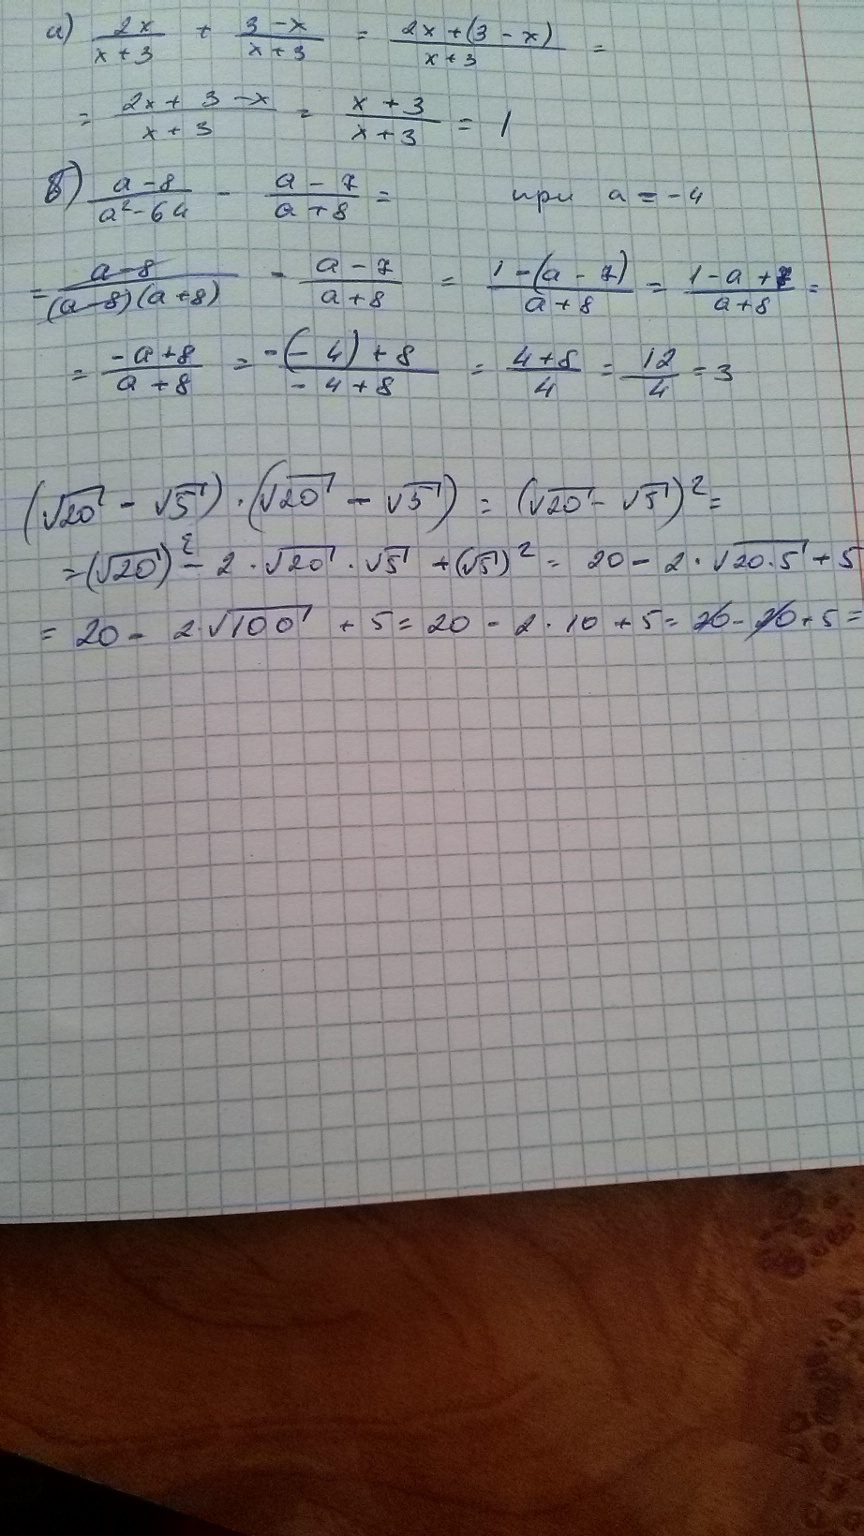 а) 2x/(x+3) + (3-x)/(x+3) = (2x+(3-x))/(x+3) =
= (2x+3-x)/(x+3) = (x+3)/(x+3) = 1
б) (a-8)/(a²-64) - (a-7)/(a+8) = при a = -4
= (a-8)/((a-8)(a+8)) - (a-7)/(a+8) = (1-(a-7))/(a+8) = (1-a+7)/(a+8) =
= (-a+8)/(a+8) = (-(-4)+8)/(-4+8) = (4+8)/4 = 12/4 = 3
(√20 - √5)·(√20 - √5) = (√20 - √5)² =
= (√20)² - 2·√20·√5 + (√5)² = 20 - 2·√20·5 + 5
= 20 - 2·√100 + 5 = 20 - 2·10 + 5 = 20 - 20 + 5 =